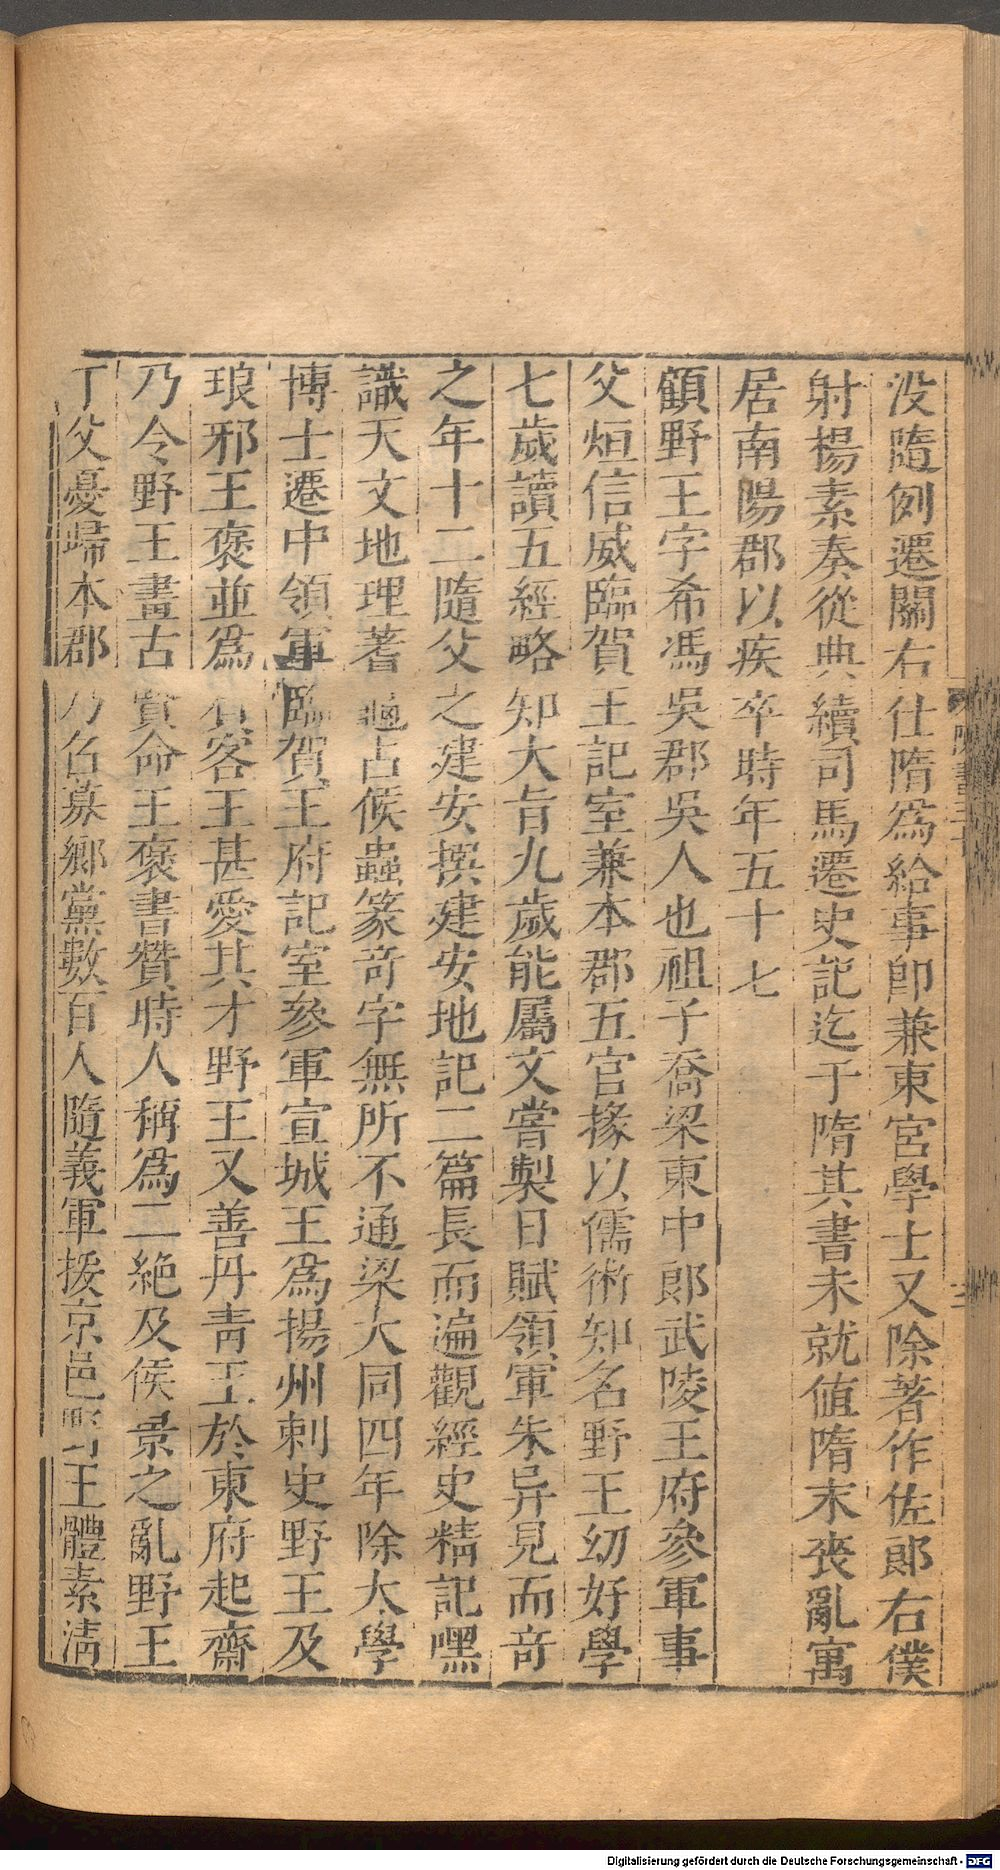 没隋例遷關右仕隋爲給事郎兼東宮學士又除著作佐郎右僕
射楊素奏從典續司馬遷史記迄于隋其書未就值隋末喪亂寓
居南陽郡以疾卒時年五十七
顧野王字希馮吳郡吳人也祖子喬梁東中郎武陵王府參軍事
父烜信威臨賀王記室兼本郡五官掾以儒術知名野王幼好學
七歲讀五經略知大旨九歲能屬文嘗製日賦領軍朱异見而奇
之年十二隨父之建安撰建安地記二篇長而遍觀經史精記嘿
識天文地理蓍龜占候蟲篆奇字無所不通梁大同四年除大學
博士遷中領軍臨賀王府記室參軍宣城王爲揚州刺史野王及
琅邪王褒並爲賓客王甚愛其才野王又善丹青王於東府起齋
乃令野王畫古賢命王褒書贊時人稱爲二絶及侯景之亂野王
丁父憂歸本郡乃召募鄉黨數百人隨義軍援京邑野王體素清
陳書三十
Digitalisierung gefördert durch die Deutsche Forschungsgemeinschaft - DFG